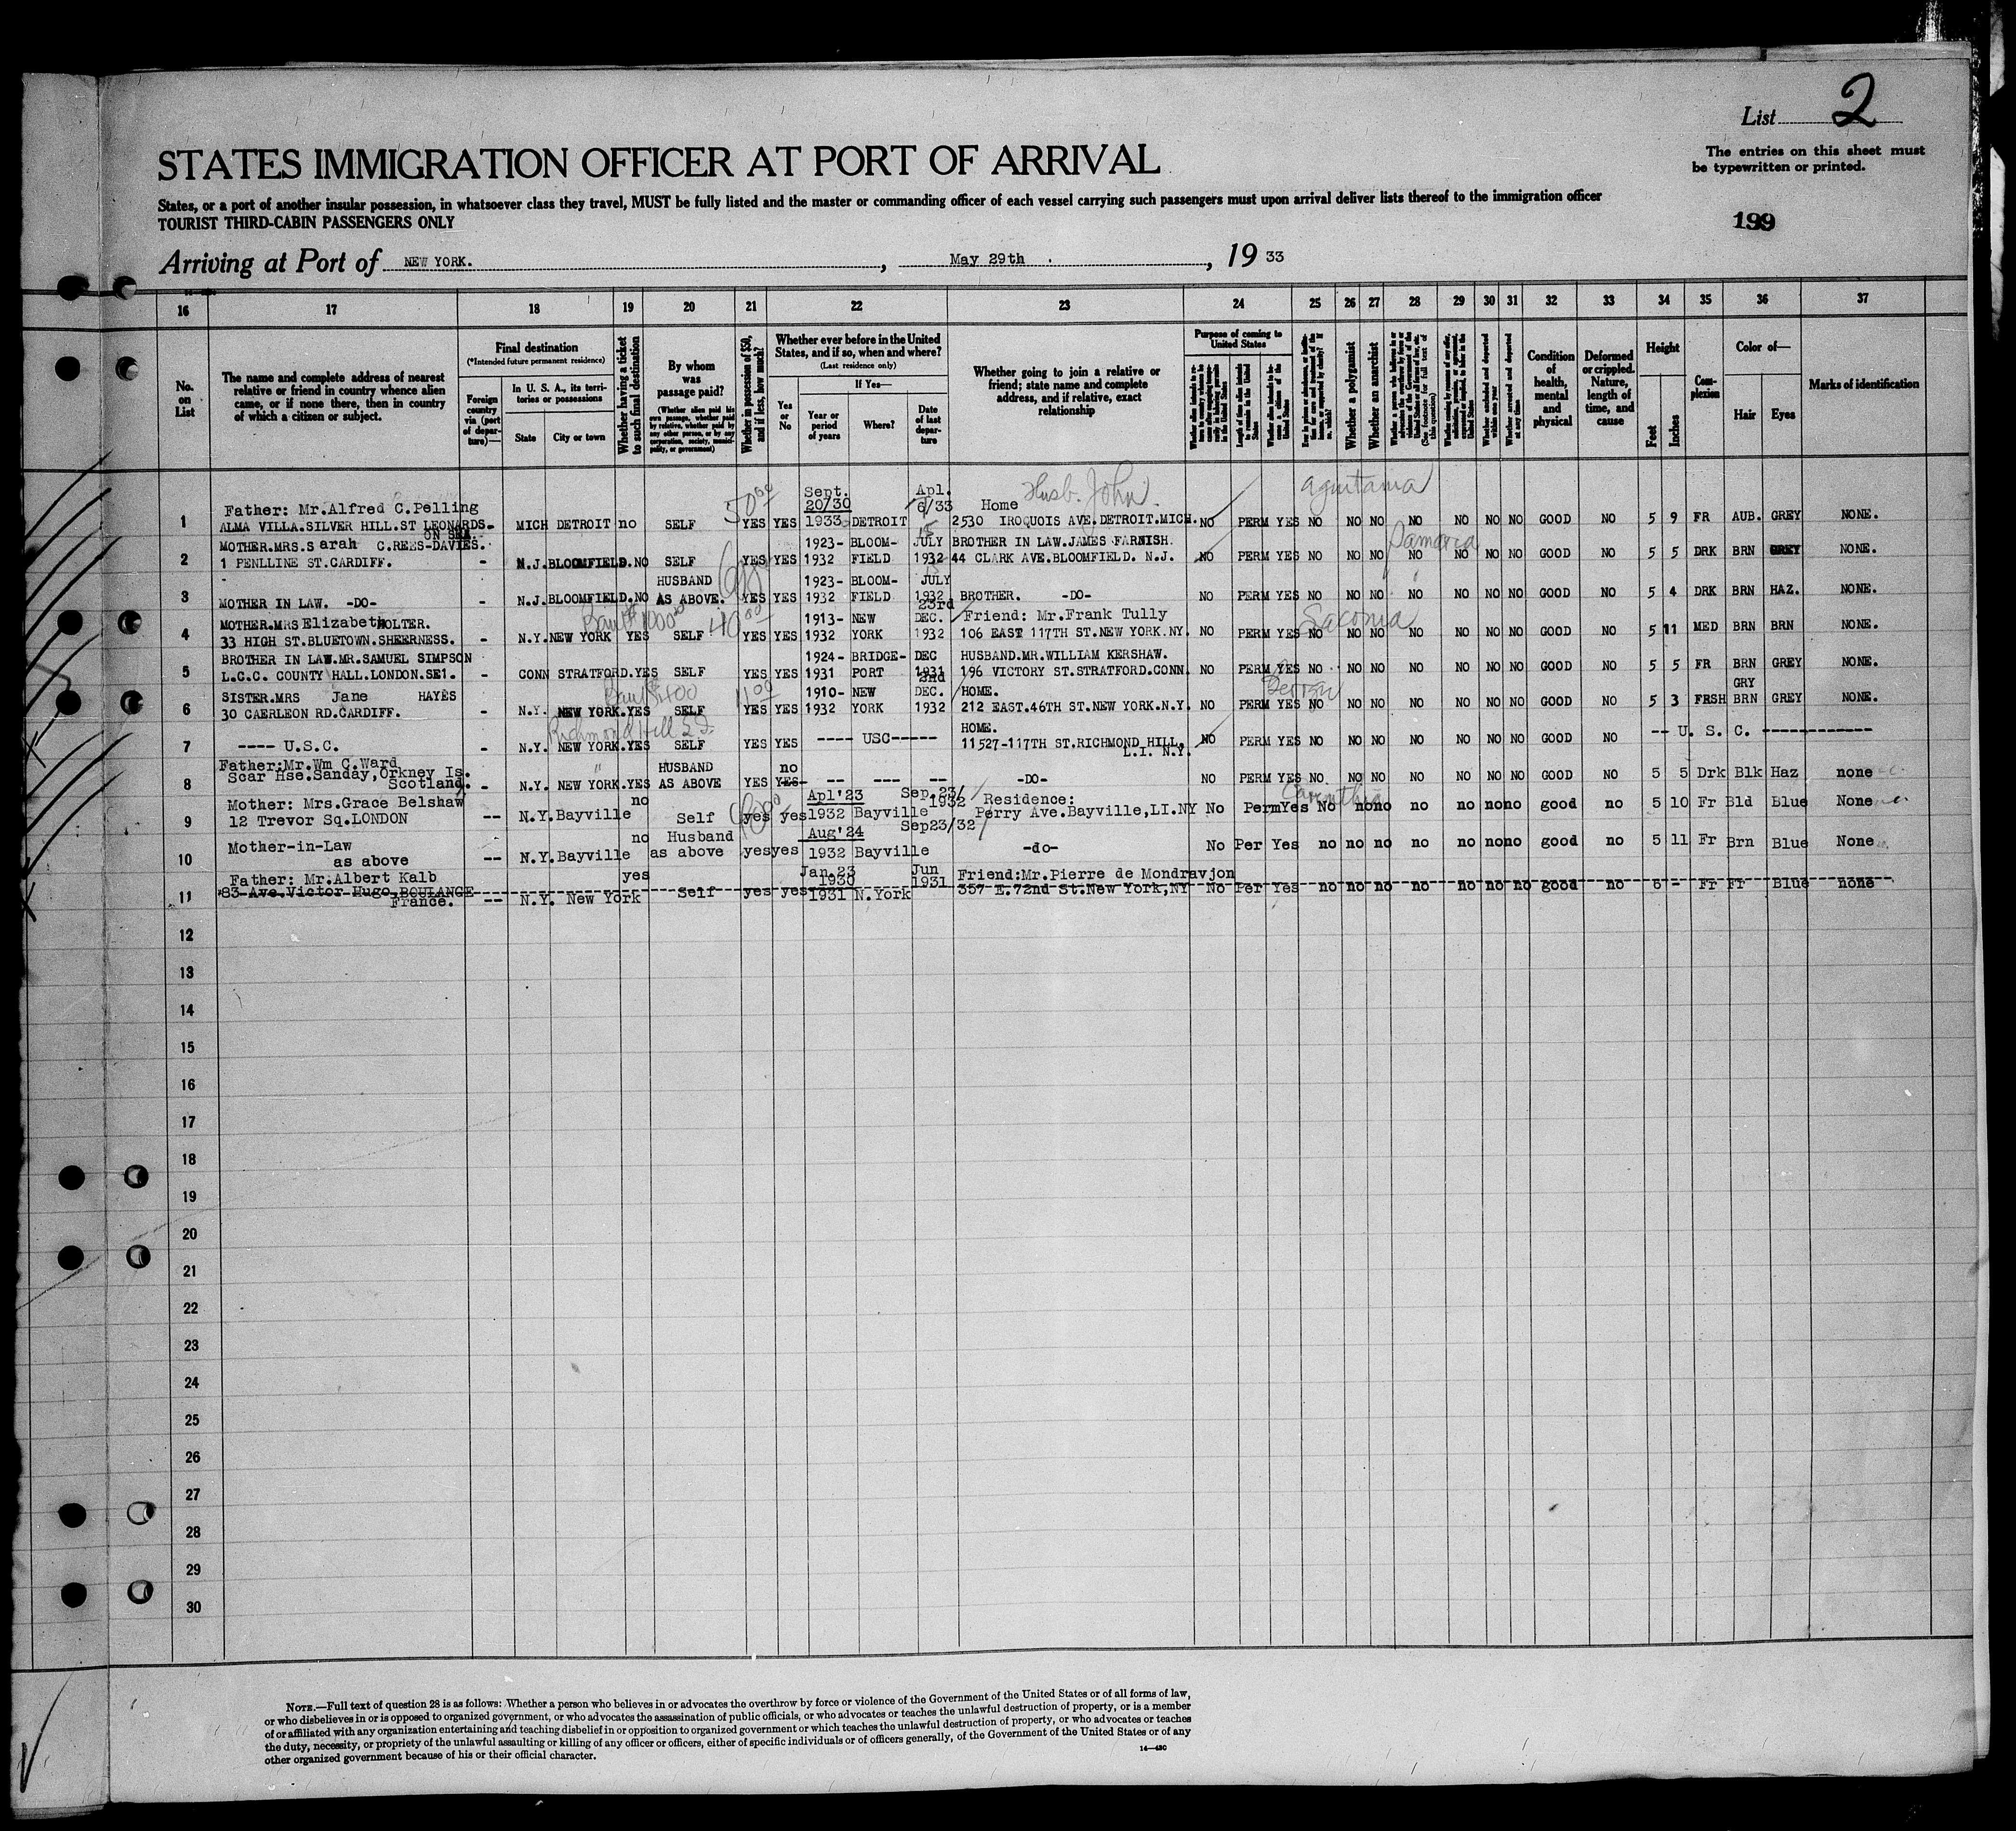 List 2
The entries on this sheet must
be typewritten or printed.
STATES IMMIGRATION OFFICER AT PORT OF ARRIVAL
States, or a port of another insular possession, in whatsoever class they travel, MUST be fully listed and the master or commanding officer of each vessel carrying such passengers must upon arrival deliver lists thereof to the immigration officer
TOURIST THIRD-CABIN PASSENGERS ONLY
199
Arriving at Port of NEW YORK. , May 29th . , 19 33
16 17 18 19 20 21 22 23 24 25 26 27 28 29 30 31 32 33 34 35 36 37
No. on List
The name and complete address of nearest
relative or friend in country whence alien
came, or if none there, then in country
of which a citizen or subject.
Final destination
(*Intended future permanent residence)
Foreign country via (port of departure)—
In U. S. A., its territories or possessions
State
City or town
Whether having a ticket to such final destination
By whom was passage paid?
(Whether alien paid his own passage, whether paid by relative, whether paid by any other person, or by any corporation, society, municipality, or government)
Whether in possession of $50, and if less, how much?
Whether ever before in the United
States, and if so, when and where?
(Last residence only)
Yes or No
If Yes—
Year or period of years
Where?
Date of last departure
Whether going to join a relative or
friend; state name and complete
address, and if relative, exact
relationship
Purpose of coming to United States
Length of time alien intends to remain in the United States
Whether alien intends to become a citizen of the United States
Whether a polygamist
Whether an anarchist
(See footnote for full text of this question)
Whether arrested and deported at any time
Condition of health, mental and physical
Deformed or crippled. Nature, length of time, and cause
Height
Feet
Inches
Complexion
Color of—
Hair
Eyes
Marks of identification
Husb. John aquitania
Father: Mr.Alfred C.Pelling 50 00 Sept. 20/30 Apl. 6/33 Home
1 ALMA VILLA.SILVER HILL.ST LEONARDS- ON SEA. MICH DETROIT no SELF YES YES 1933 DETROIT 2530 IROQUOIS AVE.DETROIT.MICH. NO PERM YES NO NO NO NO NO NO NO GOOD NO 5 9 FR AUB. GREY NONE.
MOTHER.MRS.Sarah C.REES-DAVIES. 1923- BLOOM- JULY 15 BROTHER IN LAW.JAMES FARNISH. Samaria
2 1 PENLLINE ST.CARDIFF. - N.J. BLOOMFIELD. NO SELF YES YES 1932 FIELD 1932 44 CLARK AVE.BLOOMFIELD. N.J. NO PERM YES NO NO NO NO NO NO NO GOOD NO 5 5 DRK BRN GREY NONE.
HUSBAND 1923- BLOOM- JULY
3 MOTHER IN LAW. -DO- - N.J. BLOOMFIELD. NO AS ABOVE. YES YES 1932 FIELD 1932 BROTHER. -DO- NO PERM YES NO NO NO NO NO NO NO GOOD NO 5 4 DRK BRN HAZ. NONE.
MOTHER.MRS Elizabeth HOLTER. 40 00 1913- NEW 23rd DEC. Friend: Mr.Frank Tully Saconia
4 33 HIGH ST.BLUETOWN.SHEERNESS. - N.Y. NEW YORK YES SELF YES YES 1932 YORK 1932 106 EAST 117TH ST.NEW YORK.NY. NO PERM YES NO NO NO NO NO NO NO GOOD NO 5 11 MED BRN BRN NONE.
BROTHER IN LAW.MR.SAMUEL SIMPSON 1924- BRIDGE- DEC HUSBAND.MR.WILLIAM KERSHAW.
5 L.C.C. COUNTY HALL.LONDON.SE1. - CONN STRATFORD. YES SELF YES YES 1931 PORT 1931 196 VICTORY ST.STRATFORD.CONN. NO PERM YES NO NO NO NO NO NO NO GOOD NO 5 5 FR BRN GREY NONE.
SISTER.MRS Jane HAYES 11 00 1910- NEW 3rd DEC. HOME. GRY
6 30 CAERLEON RD.CARDIFF. - N.Y. NEW YORK. YES SELF YES YES 1932 YORK 1932 212 EAST.46TH ST.NEW YORK.N.Y. NO PERM YES NO NO NO NO NO NO NO GOOD NO 5 3 FRSH BRN GREY NONE.
Richmond Hill HOME.
7 ---- U.S.C. - N.Y. NEW YORK. YES SELF YES YES ---- USC----- 11527-117TH ST.RICHMOND HILL. L.I. N.Y. NO PERM YES NO NO NO NO NO NO NO GOOD NO -- U. S. C. ------------
Father:Mr.Wm C.Ward HUSBAND no
8 Scar Hse.Sanday,Orkney Is. Scotland. - N.Y. NEW YORK. YES AS ABOVE YES YES- -- --- -- -DO- NO PERM YES NO NO NO NO NO NO NO GOOD NO 5 5 Drk Blk Haz none
Mother: Mrs.Grace Belshaw no Apl'23 Sep.23/ 1932 Residence: Carinthia
9 12 Trevor Sq.LONDON -- N.Y. Bayville Self yes yes 1932 Bayville Perry Ave.Bayville,LI.NY No Perm Yes No no no no no no no good no 5 10 Fr Bld Blue None
Mother-in-Law no Husband Aug'24 Sep23/32
10 as above -- N.Y. Bayville as above yes yes 1932 Bayville -do- No Per Yes no no no no no no no good no 5 11 Fr Brn Blue None
Father: Mr.Albert Kalb yes Jan 23 1930 Jun 1931 Friend:Mr.Pierre de Mondravjon
11 83 Ave.Victor Hugo,BOULANGE France. -- N.Y. New York Self yes yes 1931 N.York 357 E.72nd St.New York,NY No Per Yes no no no no no no no good no 6 - Fr Fr Blue none
12
13
14
15
16
17
18
19
20
21
22
23
24
25
26
27
28
29
30
NOTE.—Full text of question 28 is as follows: Whether a person who believes in or advocates the overthrow by force or violence of the Government of the United States or of all forms of law,
or who disbelieves in or is opposed to organized government, or who advocates the assassination of public officials, or who advocates or teaches the unlawful destruction of property, or is a member
of or affiliated with any organization entertaining and teaching disbelief in or opposition to organized government or which teaches the unlawful destruction of property, or who advocates or teaches
the duty, necessity, or propriety of the unlawful assaulting or killing of any officer or officers, either of specific individuals or of officers generally, of the Government of the United States or of any
other organized government because of his or their official character.
14—430